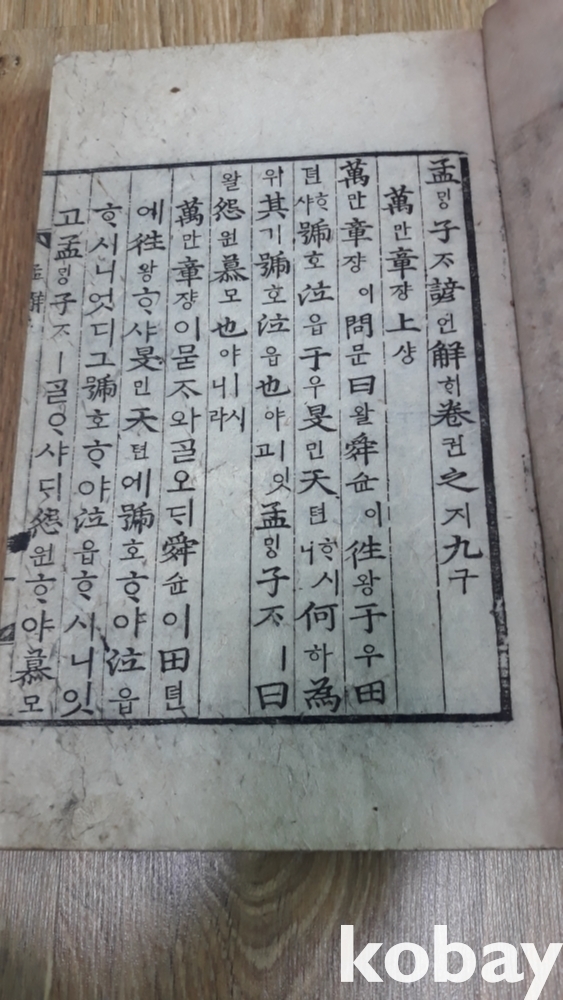 孟ᄆᆡᆼ子ᄌᆞ諺언解ᄒᆡ卷권之지九구
萬만章쟝上샹
萬만章쟝이問문曰왈舜슌이徃왕于우田
뎐ᄒᆞ샤號호泣읍于우旻민天텬ᄒᆞ시니何하爲
위其기號호泣읍也야ㅣ잇고孟ᄆᆡᆼ子ᄌᆞㅣ曰
왈怨원慕모也야ㅣ시니라
萬만章쟝이묻ᄌᆞ와ᄀᆞᆯ오ᄃᆡ舜슌이田뎐
에徃왕ᄒᆞ샤旻민天텬에號호ᄒᆞ야泣읍
ᄒᆞ시니엇디그號호ᄒᆞ야泣읍ᄒᆞ시니잇
고孟ᄆᆡᆼ子ᄌᆞㅣᄀᆞᆯᄋᆞ샤ᄃᆡ怨원ᄒᆞ야慕모
kobay